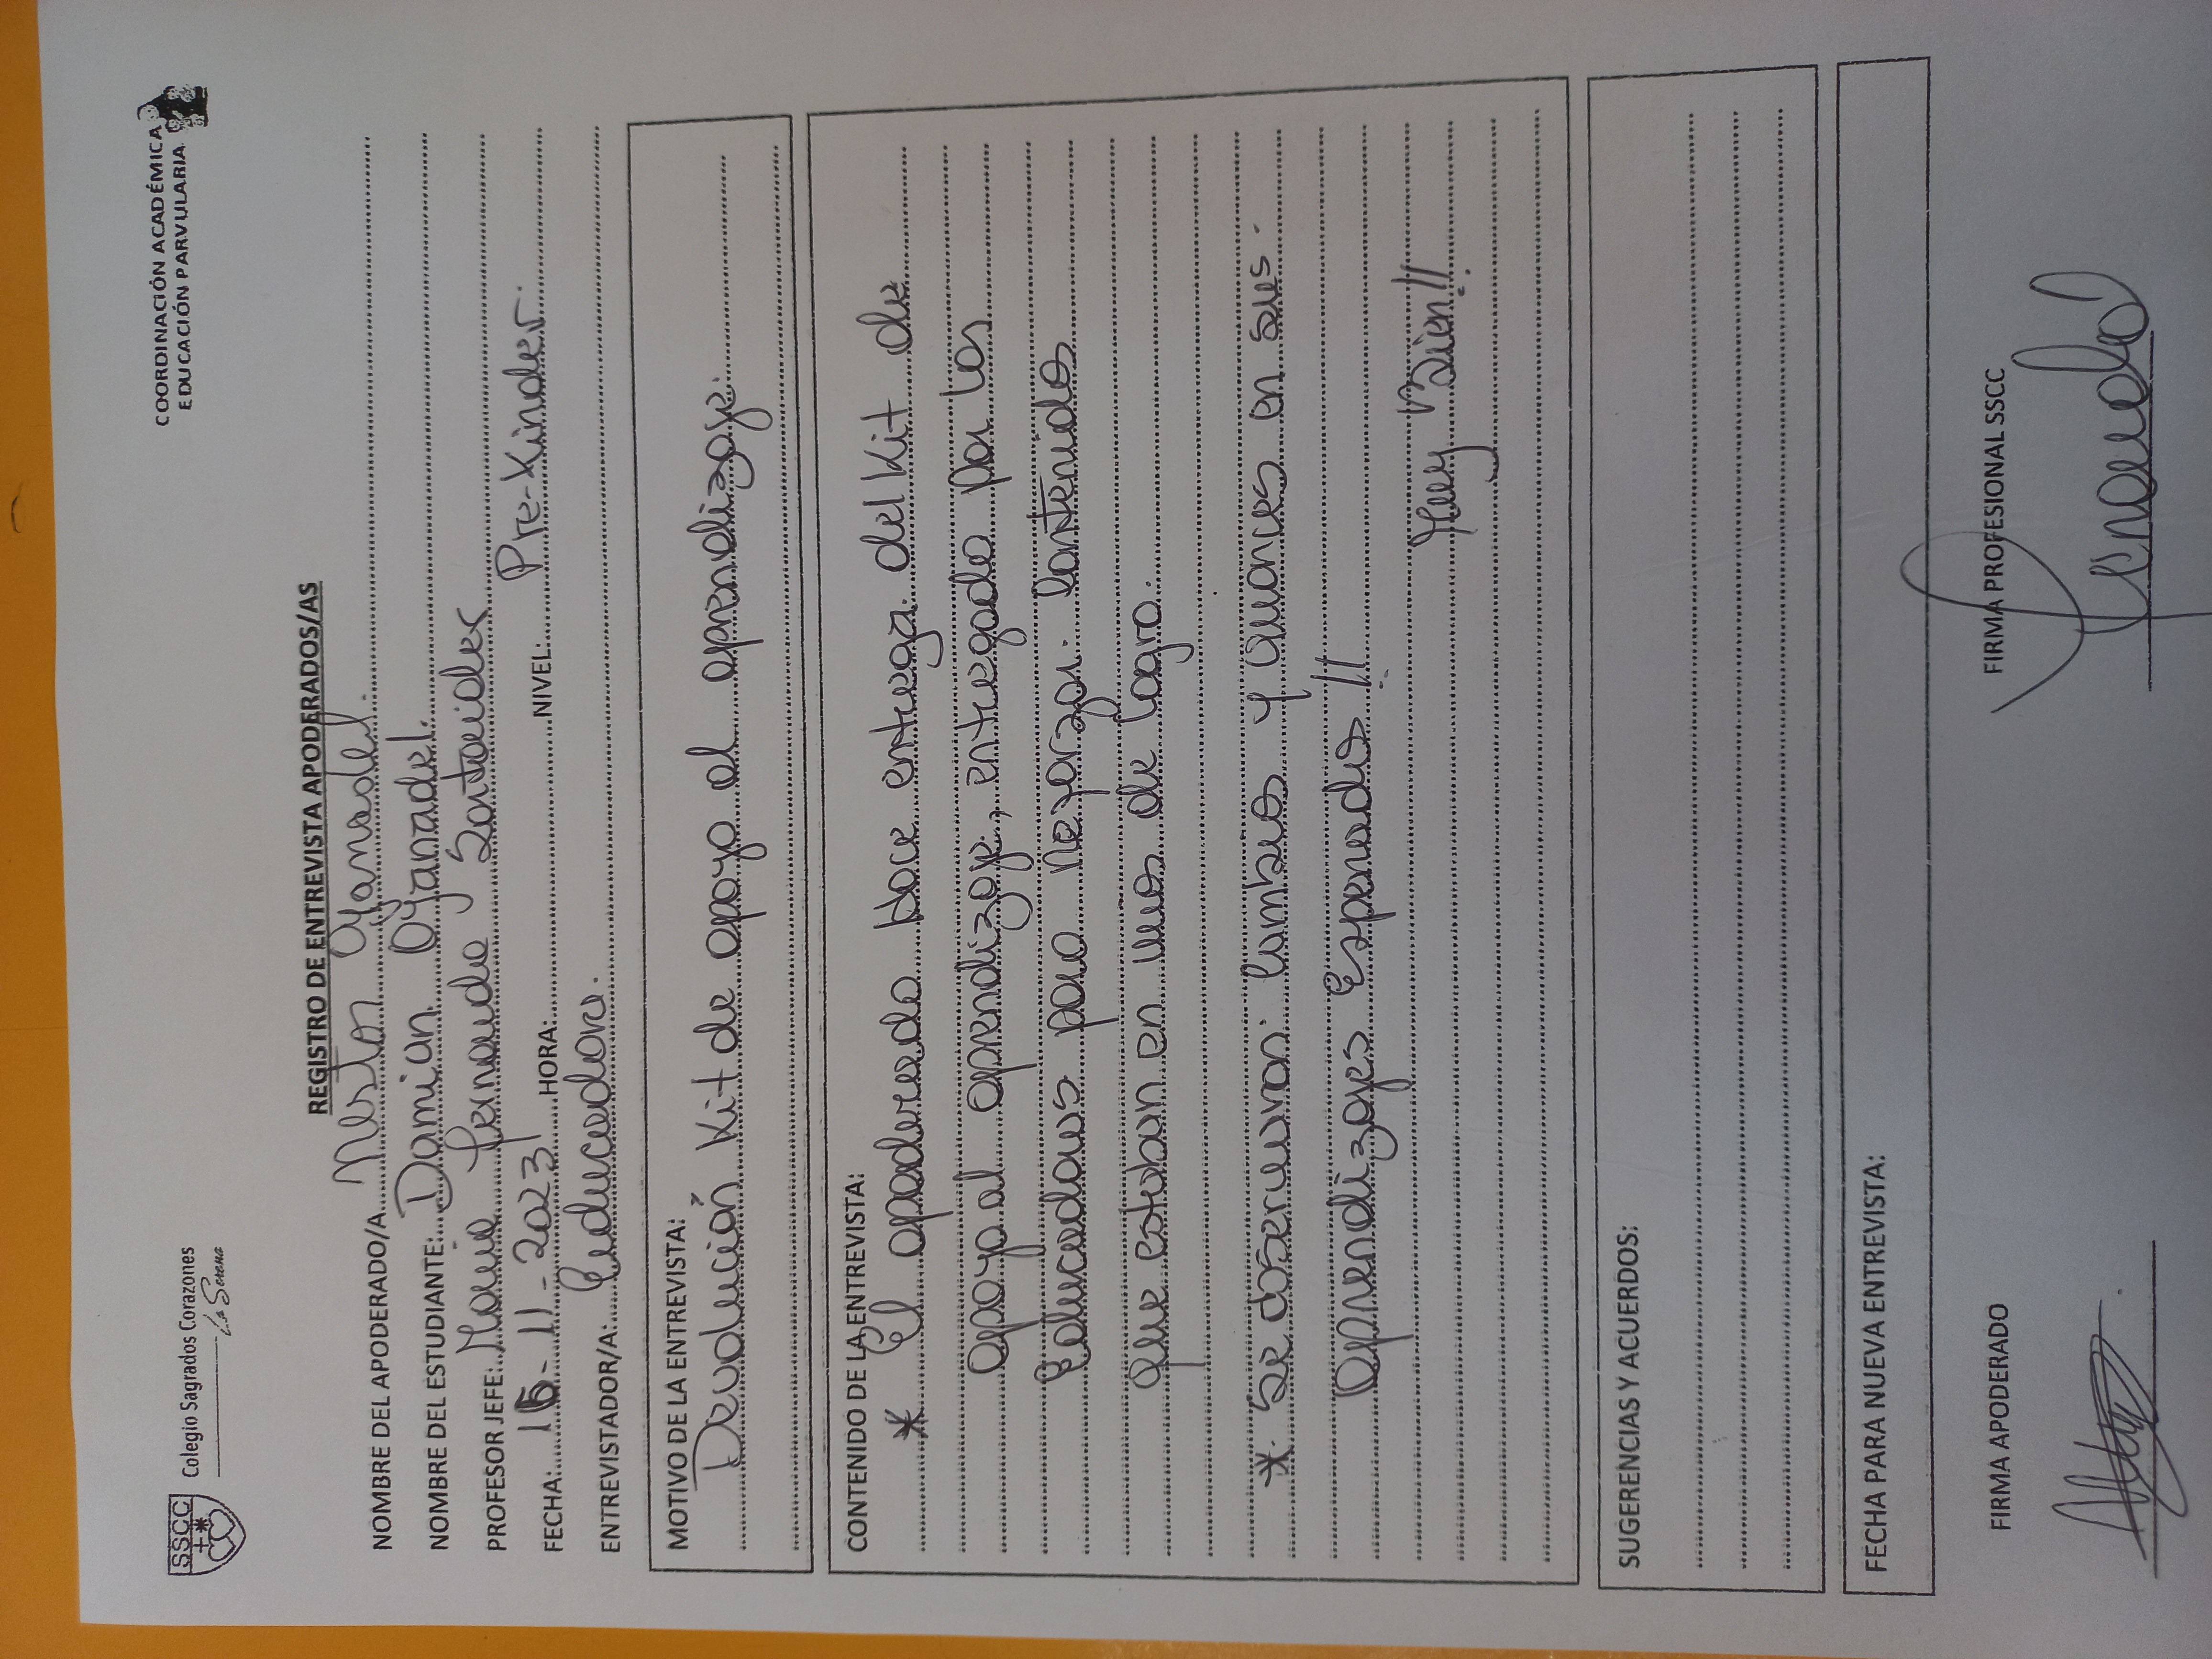 SSCC
Colegio Sagrados Corazones
La Serena
COORDINACIÓN ACADÉMICA
EDUCACIÓN PARVULARIA
REGISTRO DE ENTREVISTA APODERADOS/AS
NOMBRE DEL APODERADO/A Nestor Oyanadel.
NOMBRE DEL ESTUDIANTE: Damian Oyanadel.
PROFESOR JEFE: María Fernanda Santander
FECHA: 15-11-2023 HORA: NIVEL: Pre-Kinder.
ENTREVISTADOR/A: Educadora.
MOTIVO DE LA ENTREVISTA:
Devolución Kit de apoyo al aprendizaje.
CONTENIDO DE LA ENTREVISTA:
* El apoderado hace entrega del Kit de
apoyo al aprendizaje, entregado por las
Educadoras para reforzar contenidos
que estaban en vías de logro.
* Se observan cambios y avances en sus
aprendizajes Esperados!!
Muy Bien!!
SUGERENCIAS Y ACUERDOS:
FECHA PARA NUEVA ENTREVISTA:
FIRMA APODERADO
FIRMA PROFESIONAL SSCC